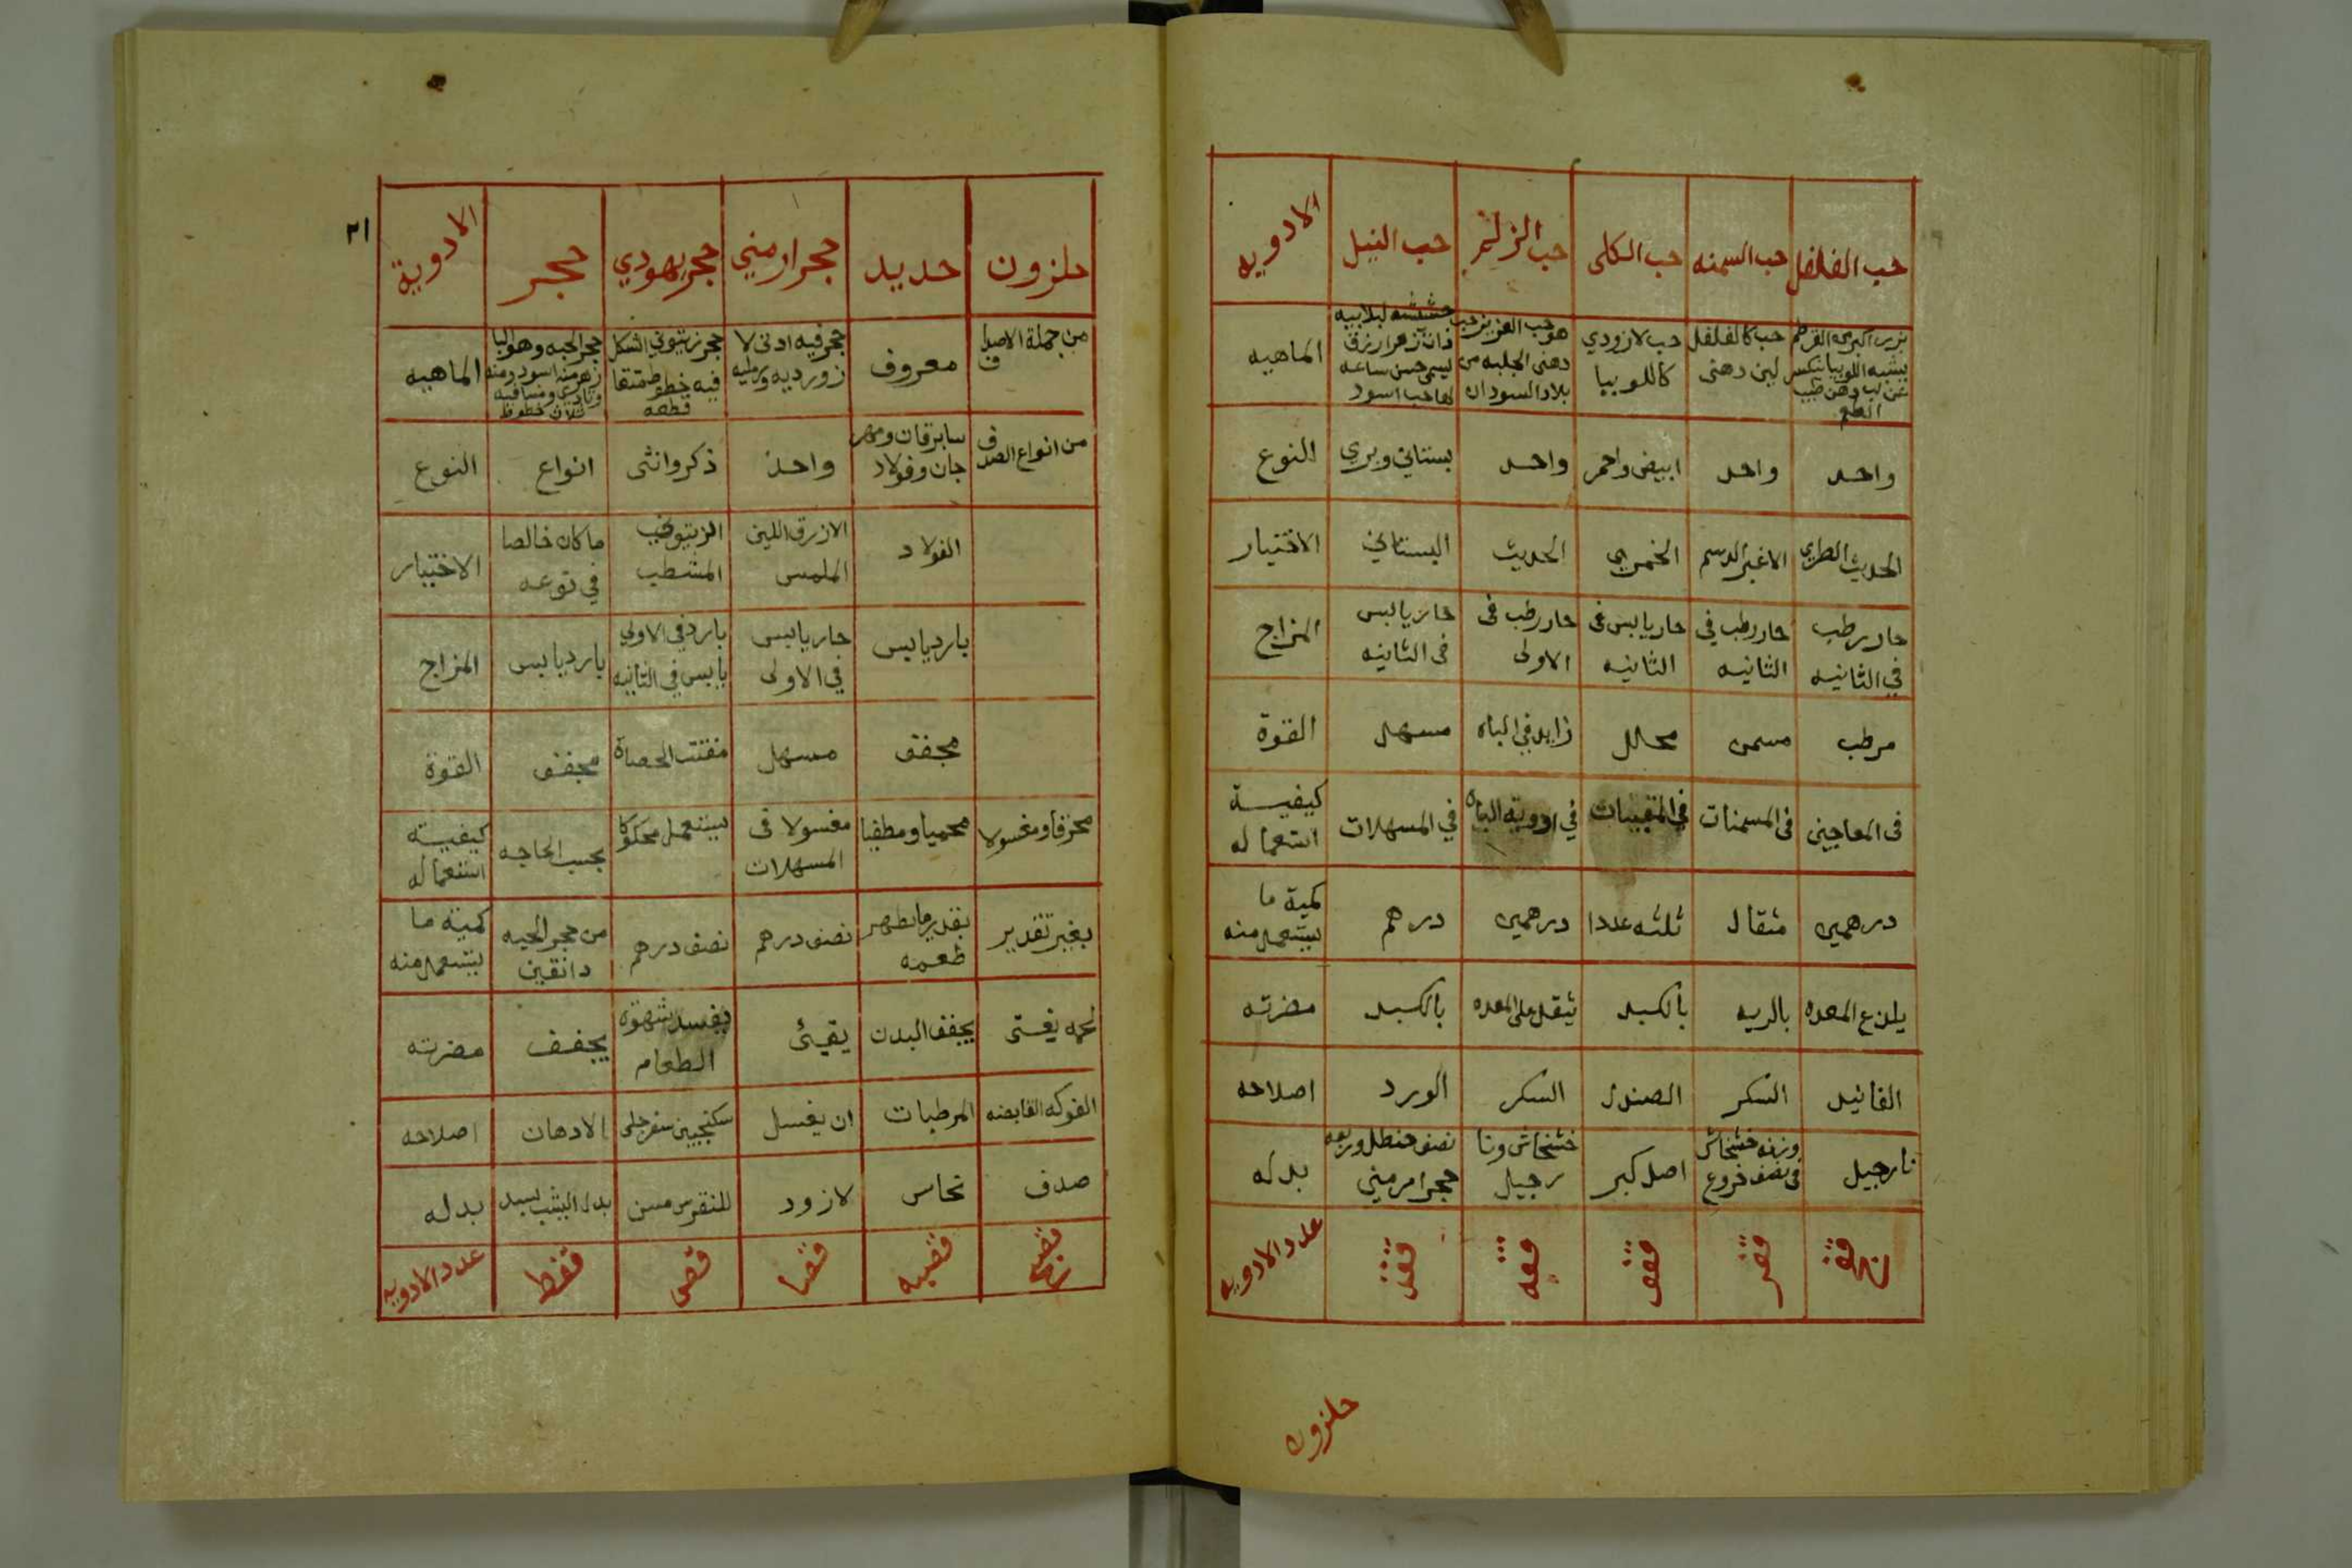 حب الفلفل حب السمنه حب الكلى حب الزلم حب النيل الادويه
بزر اكبر من القرطم يشبه اللوبيا عن لب دهن طيب الطعم
حب كالفلفل لين دهنى
حب لازوردي كاللوبيا
هو حب العزيز حب دهنى الجلبه من بلاد السودان
حشيشه لبلابيه ذات زهر ازرق ليسمى حسن ساعه لها حب اسود
الماهيه
واحد واحد ابيض واحمر واحد بستاني وبري النوع
الحديث الطري الاغبر الدسم الخمري الحديث البستاني الاختيار
حار رطب في الثانيه
حار رطب في الثانيه
حار يابس فى الثانيه
حار رطب فى الاولى
حار يابس فى الثانيه
المزاج
مرطب مسمن محلل زايد في الباه مسهل القوة
فى المعاجين فى المسمنات في المقييات في ادوية الباه في المسهلات كيفية استعماله
درهمين مثقال ثلثه عددا درهمين درهم كمية ما يستعمل منه
يلذع المعده بالريه بالكبد يثقل على المعده بالكبد مضرته
الفانيد السكر الصندل السكر الورد اصلاحه
نارجيل
وزنه خشخاش فى نصف خروع
اصل كبر
خشخاش ونا رجيل
نصف حنظل وربعه حجر ارمني
بدله
عدد الادويه
حلزون
٢١
حلزون حديد حجر ارمني حجر يهودي حجر الادوية
من جملة الاصداف
معروف
حجر فيه ادنى لا زورديه ورمليه
حجر زيتوني الشكل فيه خطوط متقاطعه
حجر الحيه وهو البا زهر منه اسود ومنه رمادي ومنه ما فيه ثلاث خطوط
الماهيه
من انواع الصدف
سابرقان ومرم جان وفولاد
واحد ذكر وانثى انواع النوع
الفولاد
الازرق اللين الملمس
الزيتوني المشطب
ما كان خالصا في نوعه
الاختيار
بارد يابس
حار يابس في الاولى
بارد في الاولي يابس في الثانيه
بارد يابس
المزاج
مجفف مسهل مفتت الحصاة مجفف القوة
محرقا ومغسولا محميا ومطفيا
مغسولا فى المسهلات
يستعمل محكوكا
بحسب الحاجه
كيفية استعماله
بغير تقدير
بقدير ما يظهر طعمه
نصف درهم نصف درهم
من حجر الحيه دانقين
كمية ما يستعمل منه
لحمه يغثى يجفف البدن يقيئ
يفسد شهوة الطعام
يجفف مضرته
الفوكه القابضه المرطبات ان يغسل سكنجبين سفرجلى الادهان اصلاحه
صدف نحاس لازود للنقرس مسن بدله
عدد الادويه